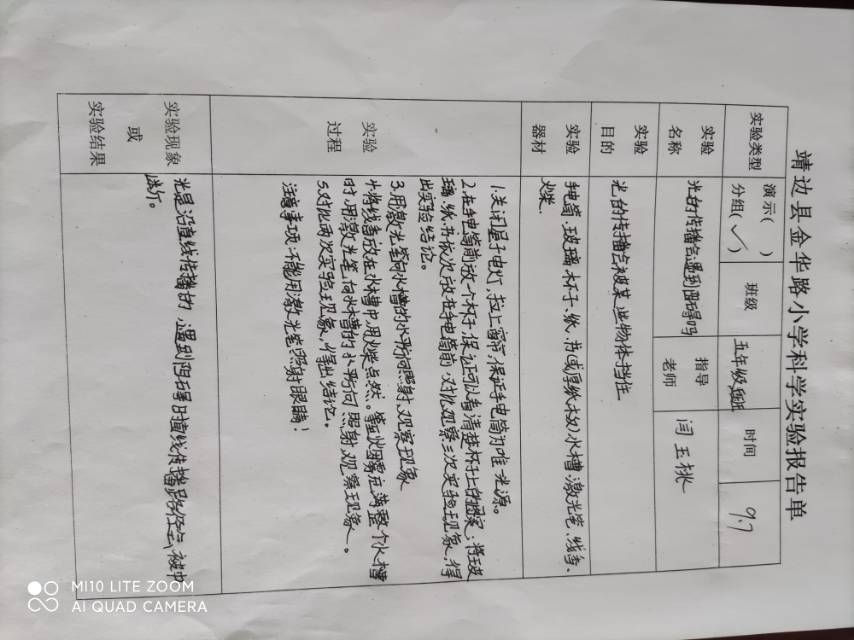 靖边县金华路小学科学实验报告单
实验类型 演示( ) 分组(✓) 班级 五年级 时间 9.7
实验名称 光的传播会遇到阻碍吗 指导老师 闫玉桃
实验目的 光的传播会被某些物体挡住
实验器材 手电筒、玻璃杯子、纸、书(或厚纸板)、水槽、激光笔、线香、
火柴.
实验过程 1.关闭屋子电灯,拉上窗帘,保证手电筒为唯一光源。
2.在手电筒前放一个杯子,保证可以看清楚杯子上的图案;将玻
璃、纸、书依次放在手电筒前,对比观察三次实验现象,得
出实验结论。
3.用激光笔向水槽的水平方向照射,观察现象
4.将线香放在水槽中,用火柴点燃。等到烟雾充满整个水槽
时,用激光笔向水槽的水平方向照射,观察现象。
5.对比两次实验现象,得出结论。
注意事项:不能用激光笔照射眼睛!
实验现象或实验结果 光是沿直线传播的,遇到阻碍时直线传播路径会被中
断。
MI 10 LITE ZOOM
AI QUAD CAMERA